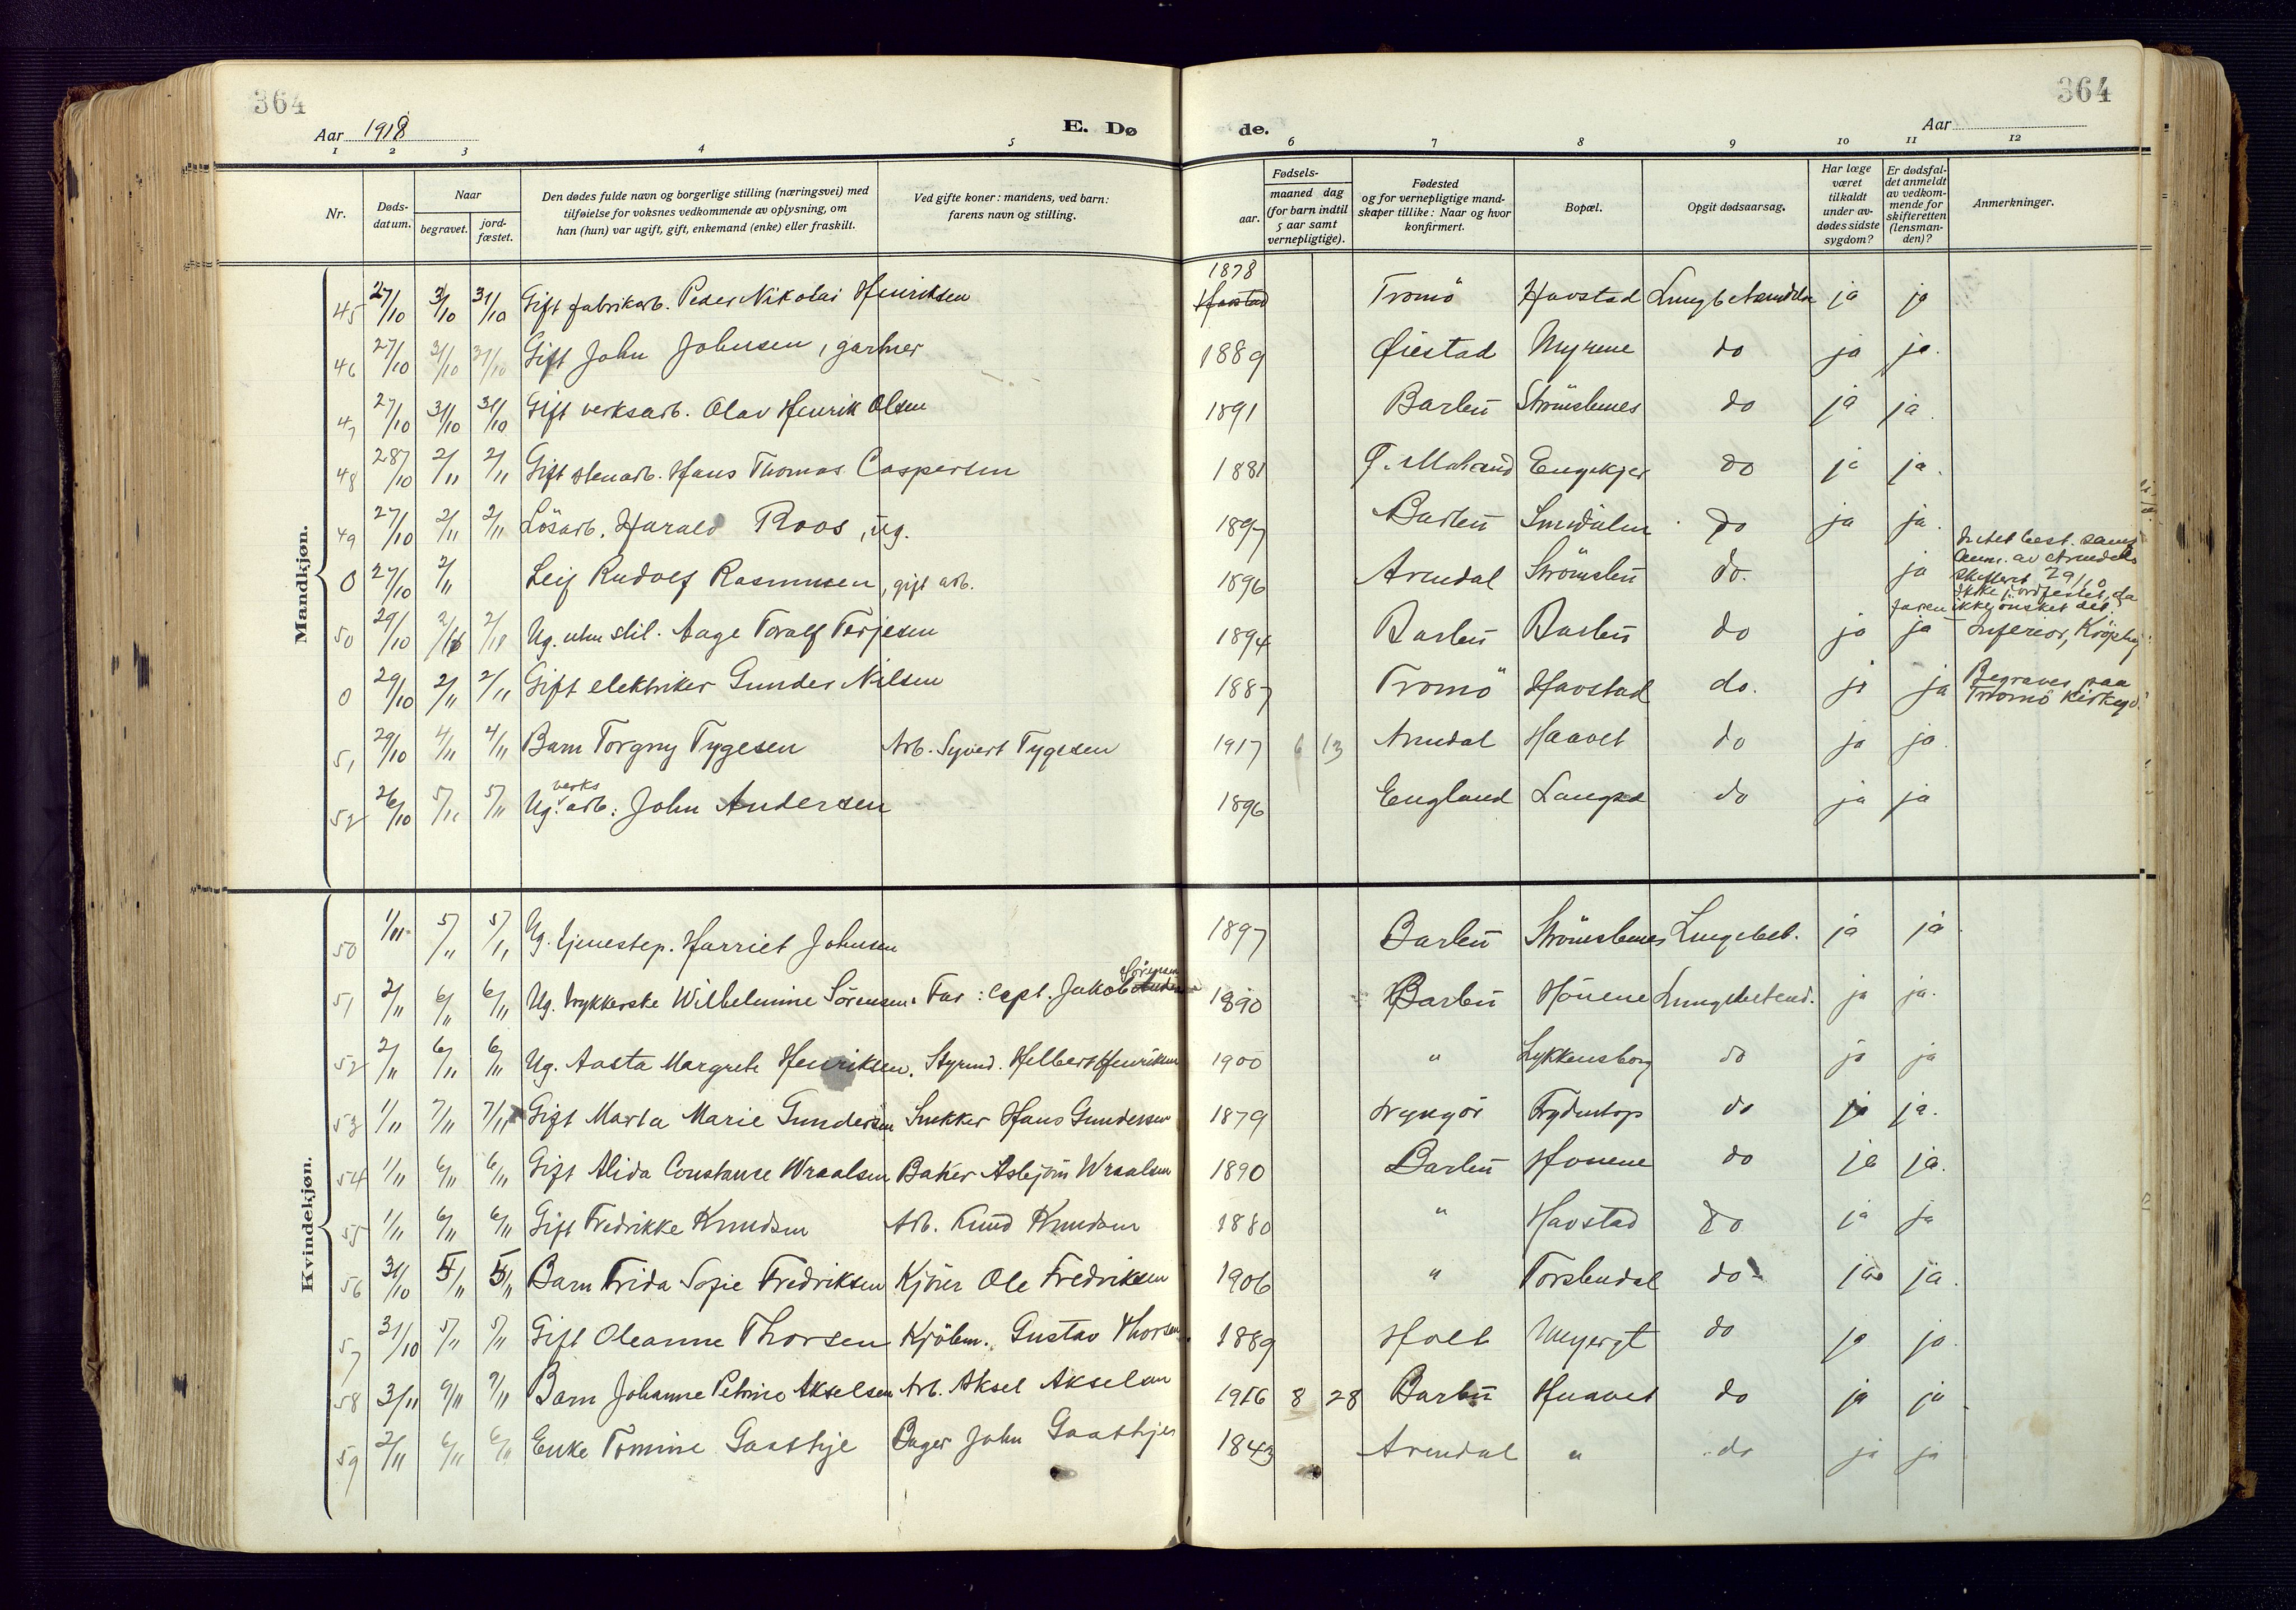 364
364
Aar 1918
E. Dø
de.
Aar
1 2 3 4 5 6 7 8 9 10 11 12
Nr.
Døds-
datum.
Naar
begravet.
jord-
fæstet.
Den dødes fulde navn og borgerlige stilling (næringsvei) med
tilføielse for voksnes vedkommende av oplysning, om
han (hun) var ugift, gift, enkemand (enke) eller fraskilt.
Ved gifte koner: mandens, ved barn:
farens navn og stilling.
Fødsels-
aar.
maaned dag
(for barn indtil
5 aar samt
vernepligtige).
Fødested
og for vernepligtige mand-
skaper tillike: Naar og hvor
konfirmert.
Bopæl.
Opgit dødsaarsag.
Har læge
været
tilkaldt
under av-
dødes sidste
sygdom?
Er dødsfal-
det anmeldt
av vedkom-
mende for
skifteretten
(lensman-
den)?
Anmerkninger.
Mandkjøn.
45 27/10 31/10 31/10 Gift fabrikarb. Peder Nikolai Henriksen 1878 Havstad Tromö Havstad ja ja
46 27/10 31/10 31/10 Gift John Johnsen, gartner 1889 Øiestad Myrene do ja ja.
47 27/10 31/10 31/10 Gift verksarb. Olav Henrik Olsen 1891 Barbu Strömsbunes do ja ja.
48 28/10 2/11 2/11 Gift stenarb. Hans Thomas Caspersen 1881 Engekjer do ja ja.
49 27/10 2/11 2/11 Lösarb. Harald Roos, ug. 1897 Barbu do ja ja.
0 27/10 2/11 Leif Rudolf Rasmussen, gift arb. 1896 Arendal Strömsbu do. ja
29/10
ikke jordfestet, da
faren ikke ønsket det.
50 29/10 2/11 Ug. uten stil. Aage Toralf Terjesen 1894 Barbu Barbu do ja ja
0 29/10 2/11 2/11 Gift elektriker Gunder Nilsen 1887 Tromö Havstad do. ja ja Begraves paa
Tromö Kirkegd.
51 29/10 4/11 4/11 Barn Torgny Tygesen Arb. Syvert Tygesen 1917 6 13 Arendal Haavet do ja ja.
verks
52 26/10 5/11 5/11 Ug. arb. John Andersen 1896 England Langsæ do ja ja
Kvindekjøn.
50 1/11 5/11 5/11 Ug. tjenestep. Harriet Johnsen 1897 Barbu Strömsbunes Lungebet. ja ja.
Sörensen
51 2/11 6/11 6/11 Ug. trykkerske Wilhelmine Sörensen. Far: Capt. Jakob 1890 Barbu Lungebetend. ja ja.
52 2/11 6/11 6/11 Ug. Aasta Margrete Henriksen. Styrmd. Helbert Henriksen 1900 " Lykkensborg do ja ja
53 1/11 7/11 7/11 Gift Marta Marie Gundersen Snekker Hans Gundersen 1879 Frydentop do ja ja.
54 1/11 6/11 6/11 Gift Alida Constanse Wraalsen Baker Asbjörn Wraalsen 1890 Barbu do ja ja.
55 1/11 6/11 6/11 Gift Fredrikke Knudsen Arb. Knud Knudsen 1880 " Havstad do ja ja
56 31/10 5/11 5/11 Barn Frida Sofie Fredriksen Kjörer Ole Fredriksen 1906 " Torsbudal do ja ja.
57 31/10 5/11 5/11 Gift Oleanne Thorsen Kjöbm. Gustav Thorsen. 1889 Holt Meyergt do ja ja.
58 3/11 9/11 9/11 Barn Johanne Petrine Akselsen Arb. Aksel Akselsen 1916 8 28 Barbu Haavet do ja ja
59 2/11 6/11 6/11 Enke Tomine Gaashje John Gaashje 1843 Arendal " do ja ja